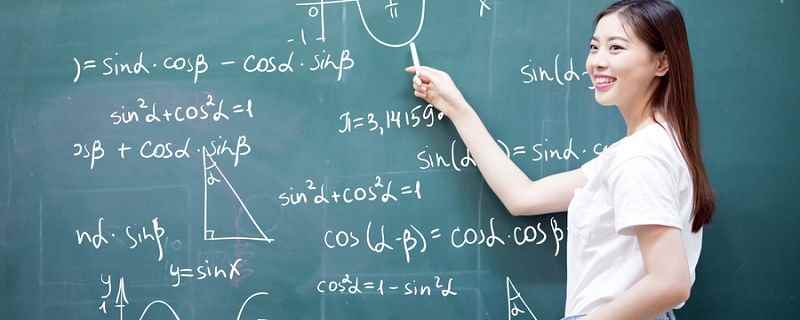 0 π x
-1
)= sinα·cosβ − cosα·sinβ
sin(α-
sin²α+cos²α=1
π=3,14159
osβ + cosα·sinβ
α
sin(α )= sinα·c
sin²α+cos²α=1
nα·sinβ
cos(α-β)= cosα·cosβ
y=sinx
y
1
cos²α=1−sin²α
α